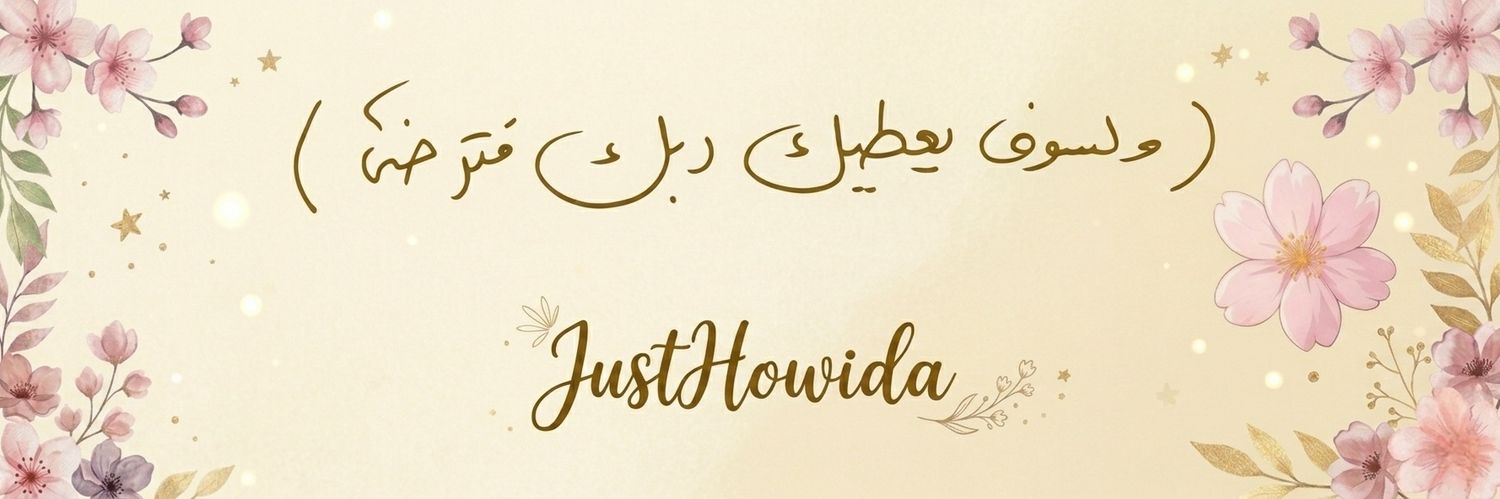 ( ولسوف يعطيك ربك فترضى )
JustHowida